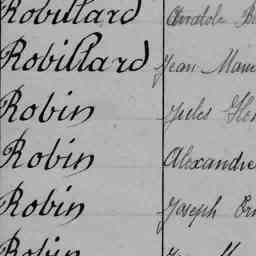 Robillard Anatole
Robillard Jean Marie
Robin Jules
Robin Alexandre
Robin Joseph
Robin